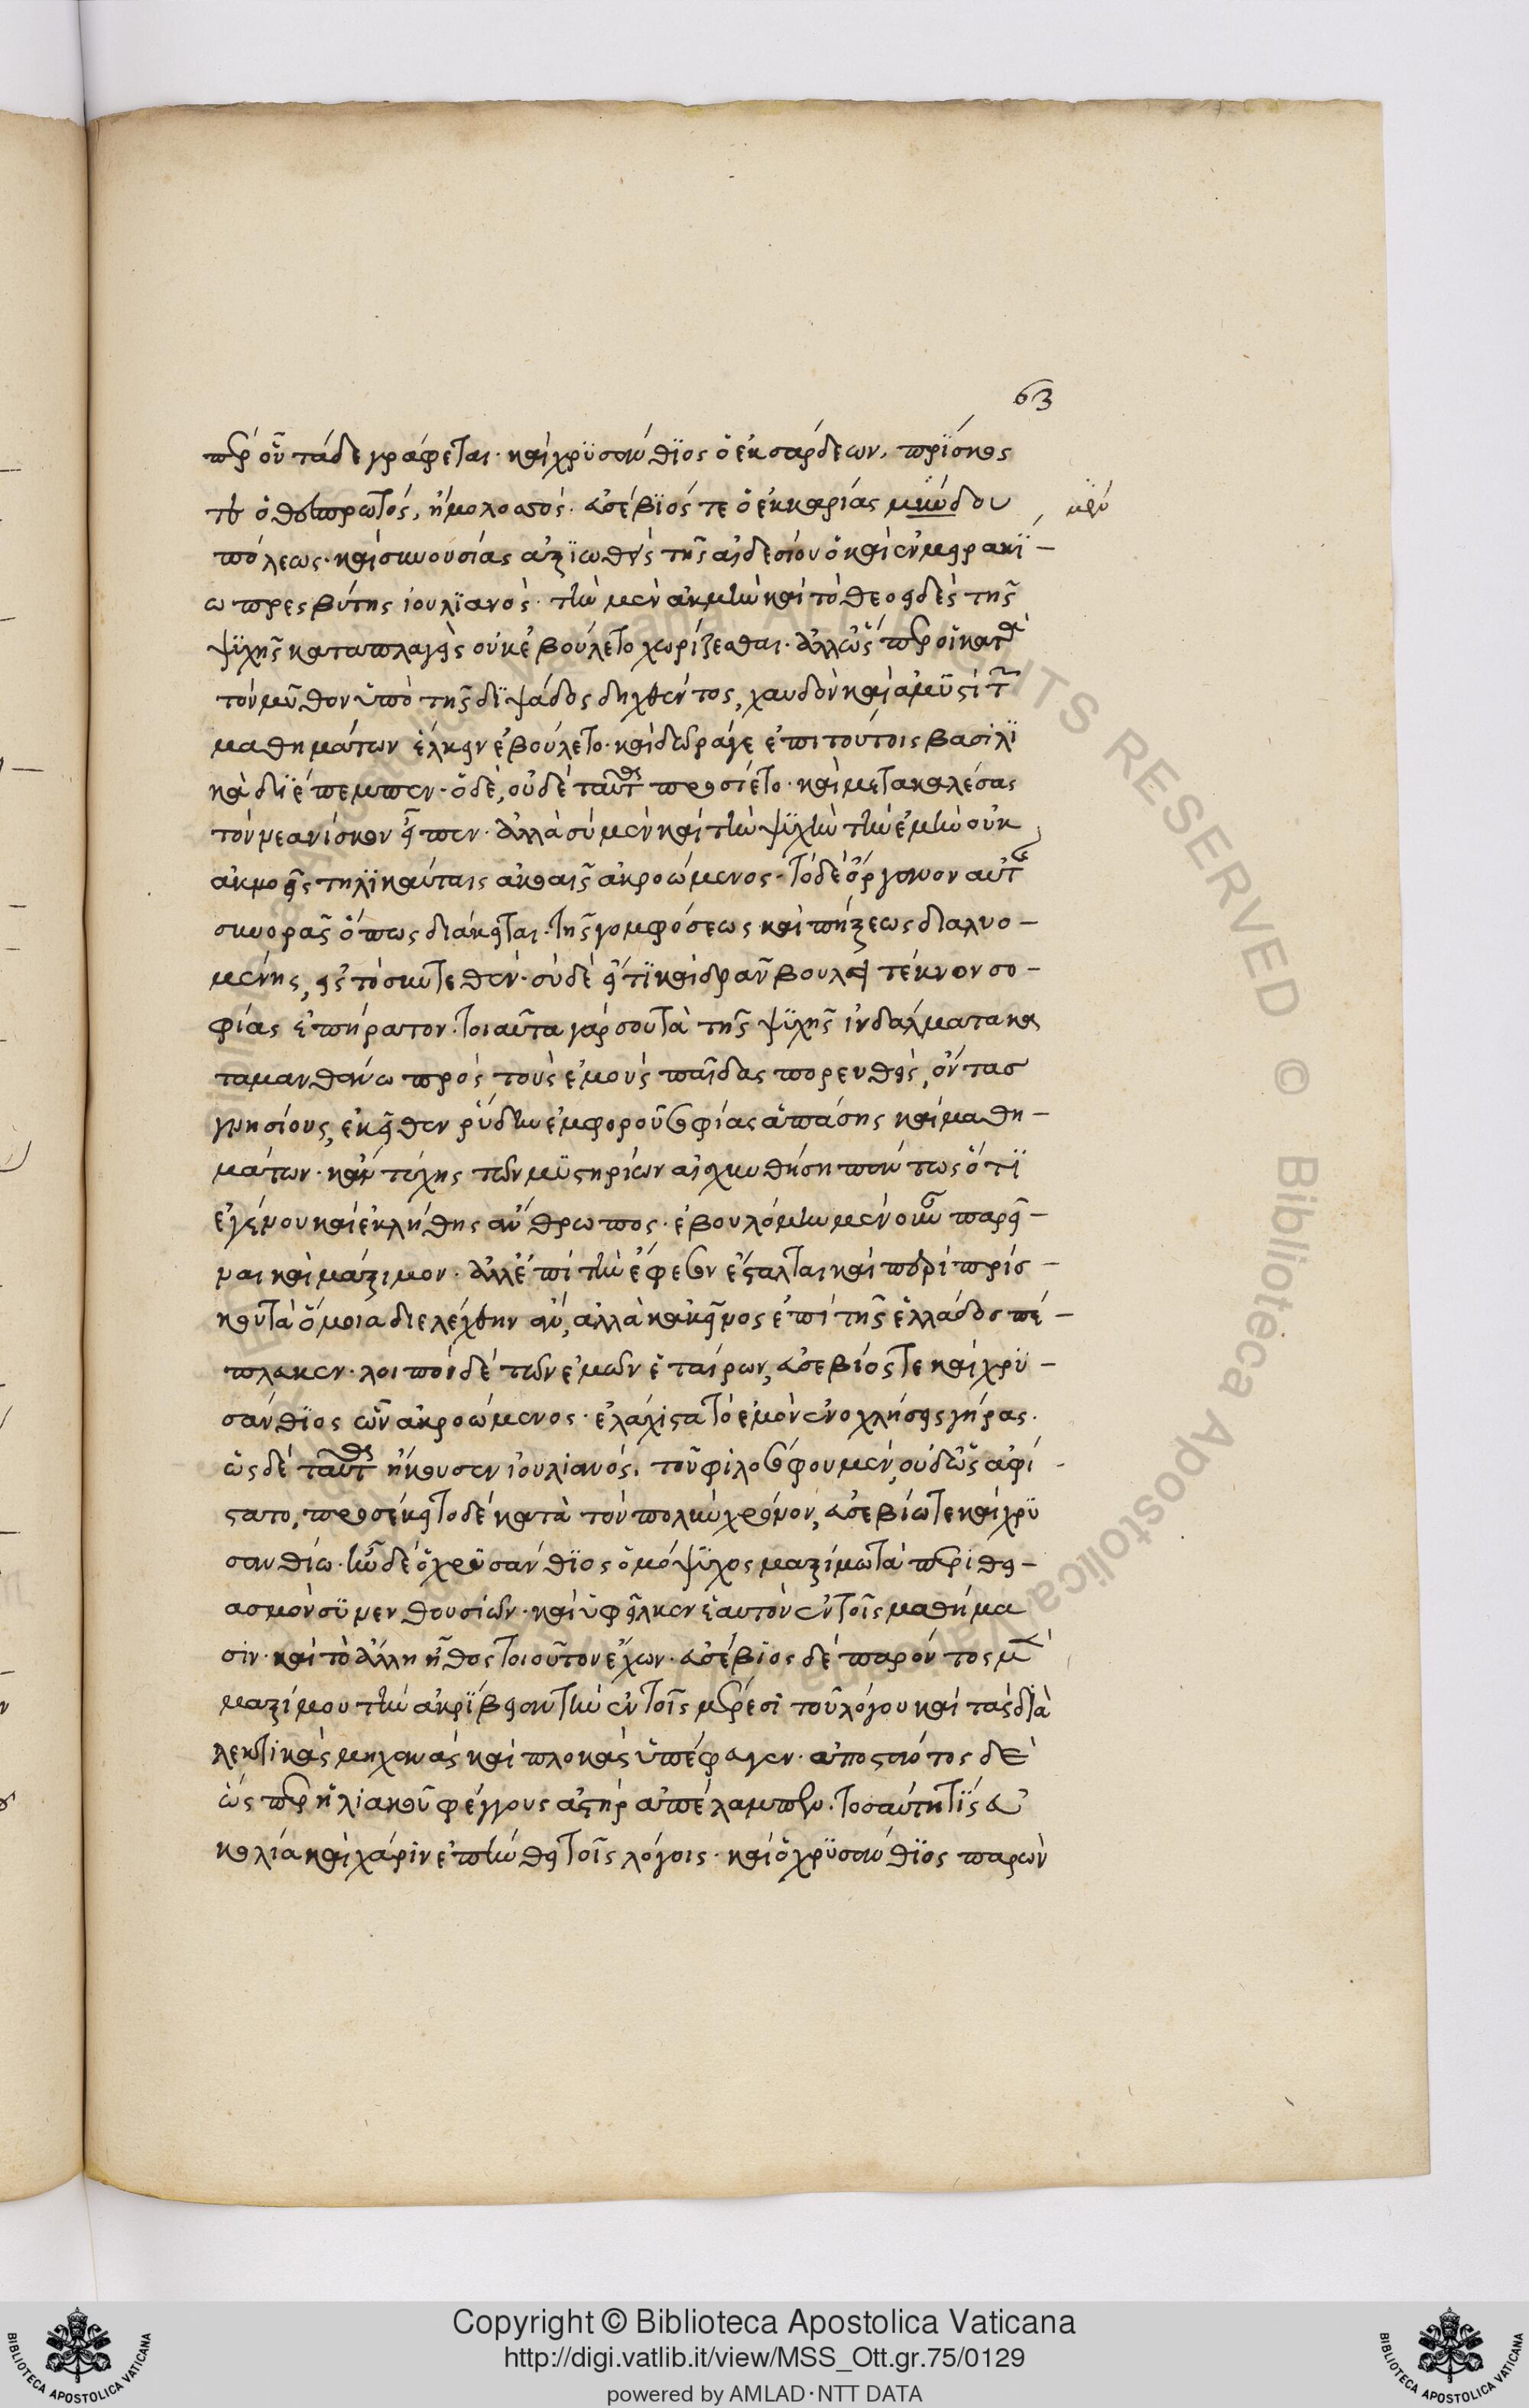 63
περ οὗ τάδε γράφεται· καὶ χρϋσάνθϊος ὁ ἐκ σάρδεων, πρΐσκος
τε ὁ θεσπρωτός, ἢ μολοσσός· εὐσέβϊός τε ὁ ἐκ καρίας μϊκύδου
μΰν
πόλεως· καὶ συνουσίας ἀξϊωθεὶς τῆς αἰδεσίου ὁ καὶ ἐν μειρακϊ–
ω πρεσβύτης ἰουλϊανὸς· τὴν μὲν ἀκμὴν καὶ τὸ θεοειδὲς τῆς
ψϋχῆς καταπλαγεὶς οὐκ ἐβούλετο χωρίζεσθαι· ἀλλ' ὥσπερ οἱ κατὰ
τὸν μῦθον ὑπὸ τῆς δϊψάδος δηχθέντος, χανδὸν καὶ ἀμϋστὶ τῶν
μαθημάτων ἕλκειν ἐβούλετο· καὶ δῶρά γε ἐπὶ τούτοις βασιλϊ
κὰ διέπεμπεν· ὁ δὲ, οὐδὲ ταῦτα προσίετο· καὶ μετακαλέσας
τὸν νεανίσκον εἶπεν· ἀλλὰ σὺ μὲν καὶ τὴν ψϋχὴν τὴν ἐμὴν οὐκ
ἀκμοεῖς τηλϊκαύταις ἀκοαῖς ἀκροώμενος· τὸ δὲ ὄργανον αὐτῆς
συνορᾶς ὅπως διάκειται· τῆς γομφόσεως καὶ πήξεως διαλυο–
μένης, εἰς τὸ συντεθέν· σὺ δὲ εἴ τϊ καὶ δρᾶν βούλει τέκνον σο–
φίας ἐπήρατον· τοιαῦτα γάρ σου τὰ τῆς ψϋχῆς ἰνδάλματα κα
ταμανθάνω πρὸς τοὺς ἐμοὺς παῖδας πορευθεὶς, ὄντας
γνησίους, ἐκεῖθεν ῥύδην ἐμφοροῦ σοφίας ἁπάσης καὶ μαθη–
μάτων· κἂν τύχης τῶν μϋστηρίων αἰσχυνθήση πάντως ὅτϊ
ἐγένου καὶ ἐκλήθης ἄνθρωπος· ἐβουλόμην μὲν οὖν παρεῖ–
ναι καὶ μάξιμον· ἀλλ' ἐπὶ τὴν ἔφεσον ἔσταλται καὶ περὶ πρίσ–
κου τὰ ὅμοια διελέχθην ἂν, ἀλλὰ κἀκεῖνος ἐπὶ τῆς ἑλλάδος πέ–
πλευκεν· λοιποὶ δὲ τῶν ἐμῶν ἑταίρων, εὐσέβιός τε καὶ χρϋ–
σάνθϊος ὧν ἀκροώμενος· ἐλάχιστα τὸ ἐμὸν ἐνοχλήσεις γήρας·
ὡς δὲ ταῦτα ἤκουσεν ἰουλιανός, τοῦ φιλοσόφου μὲν, οὐδ' ὣς ἀφί
στατο, προσέκειτο δὲ κατὰ τὸν πολὺν χρόνον, εὐσεβίω τε καὶ χρϋ
σανθίω· ἦν δὲ ὁ χρϋσάνθϊος ὁμόψϋχος μαξίμω τὰ περὶ θει–
ασμὸν σϋνενθουσιῶν· καὶ ὑφεῖλκεν ἑαυτὸν ἐν τοῖς μαθήμα
σιν· καὶ τὸ ἄλλη ἦθος τοιοῦτον ἔχων· εὐσέβϊος δὲ παρόντος μὲν
μαξίμου τὴν ἀκρϊβειαν τὴν ἐν τοῖς μέρεσι τοῦ λόγου καὶ τὰς δϊα
λεκτικὰς μηχανὰς καὶ πλοκὰς ὑπέφευγεν· ἀποστάντος δὲ
ὥσπερ ἡλιακοῦ φέγγους ἀστὴρ ἀπέλαμπεν· τοσαύτη τϊς εὐ
κολία καὶ χάρις ἐπήνθει τοῖς λόγοις· καὶ ὁ χρϋσάνθϊος παρὼν
Copyright © Biblioteca Apostolica Vaticana
http://digi.vatlib.it/view/MSS_Ott.gr.75/0129
powered by AMLAD·NTT DATA